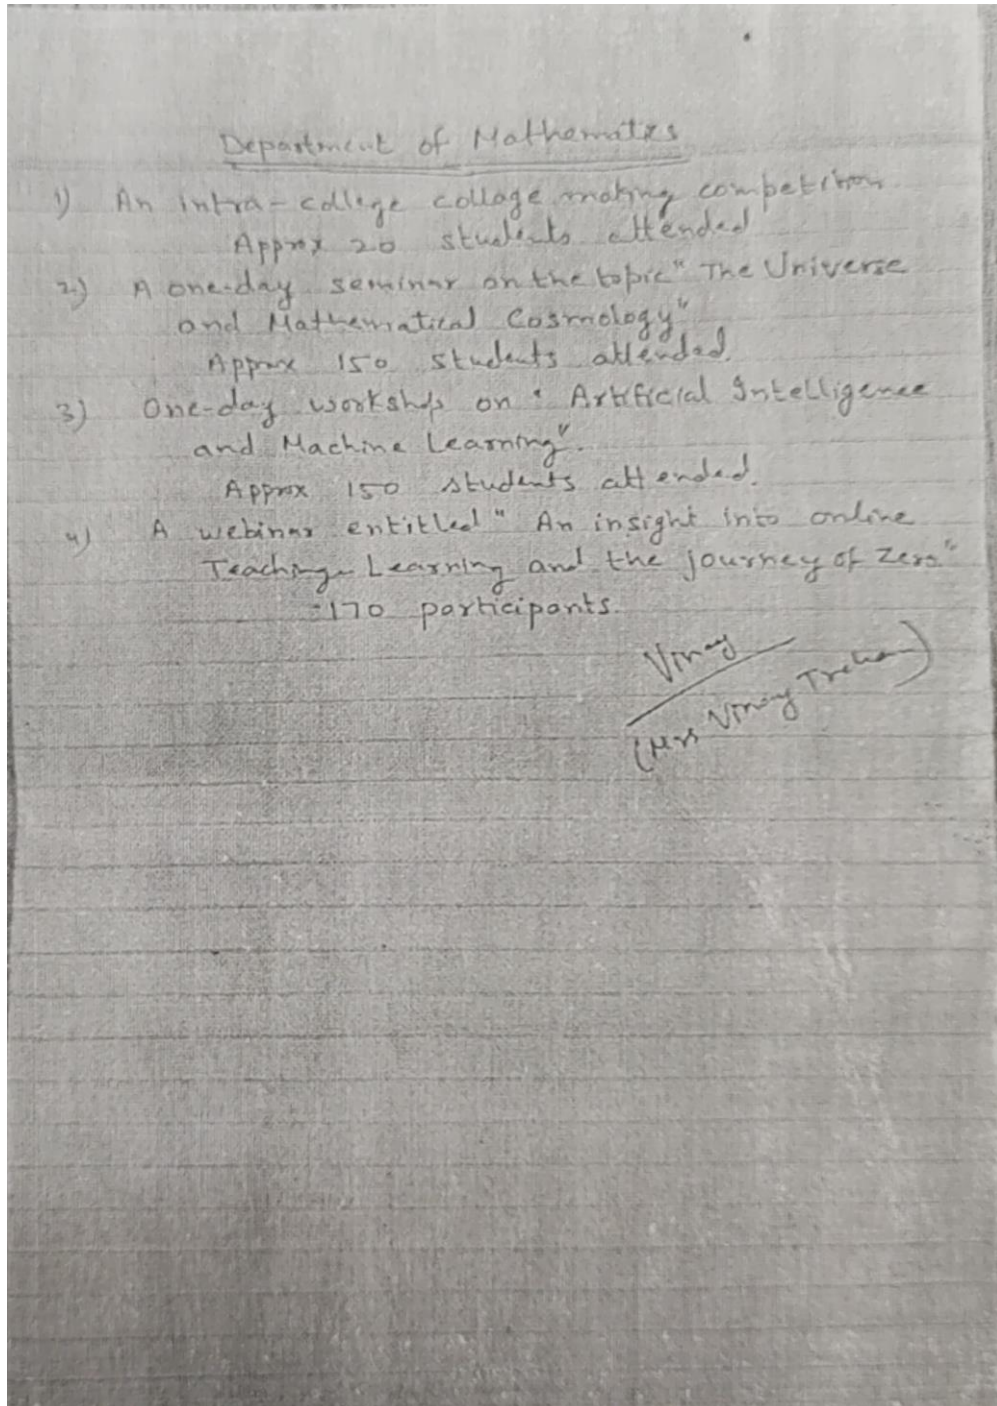 Department of Mathematics
1) An intra-college collage making competition
Approx 20 students attended
2) A one-day seminar on the topic "The Universe
and Mathematical Cosmology"
Approx 150 students attended.
3) One-day workshop on "Artificial Intelligence
and Machine Learning".
Approx 150 students attended.
4) A webinar entitled "An insight into online
Teaching-Learning and the journey of Zero"
-170 participants.
Vinay
(Mrs Vinay Trehan)